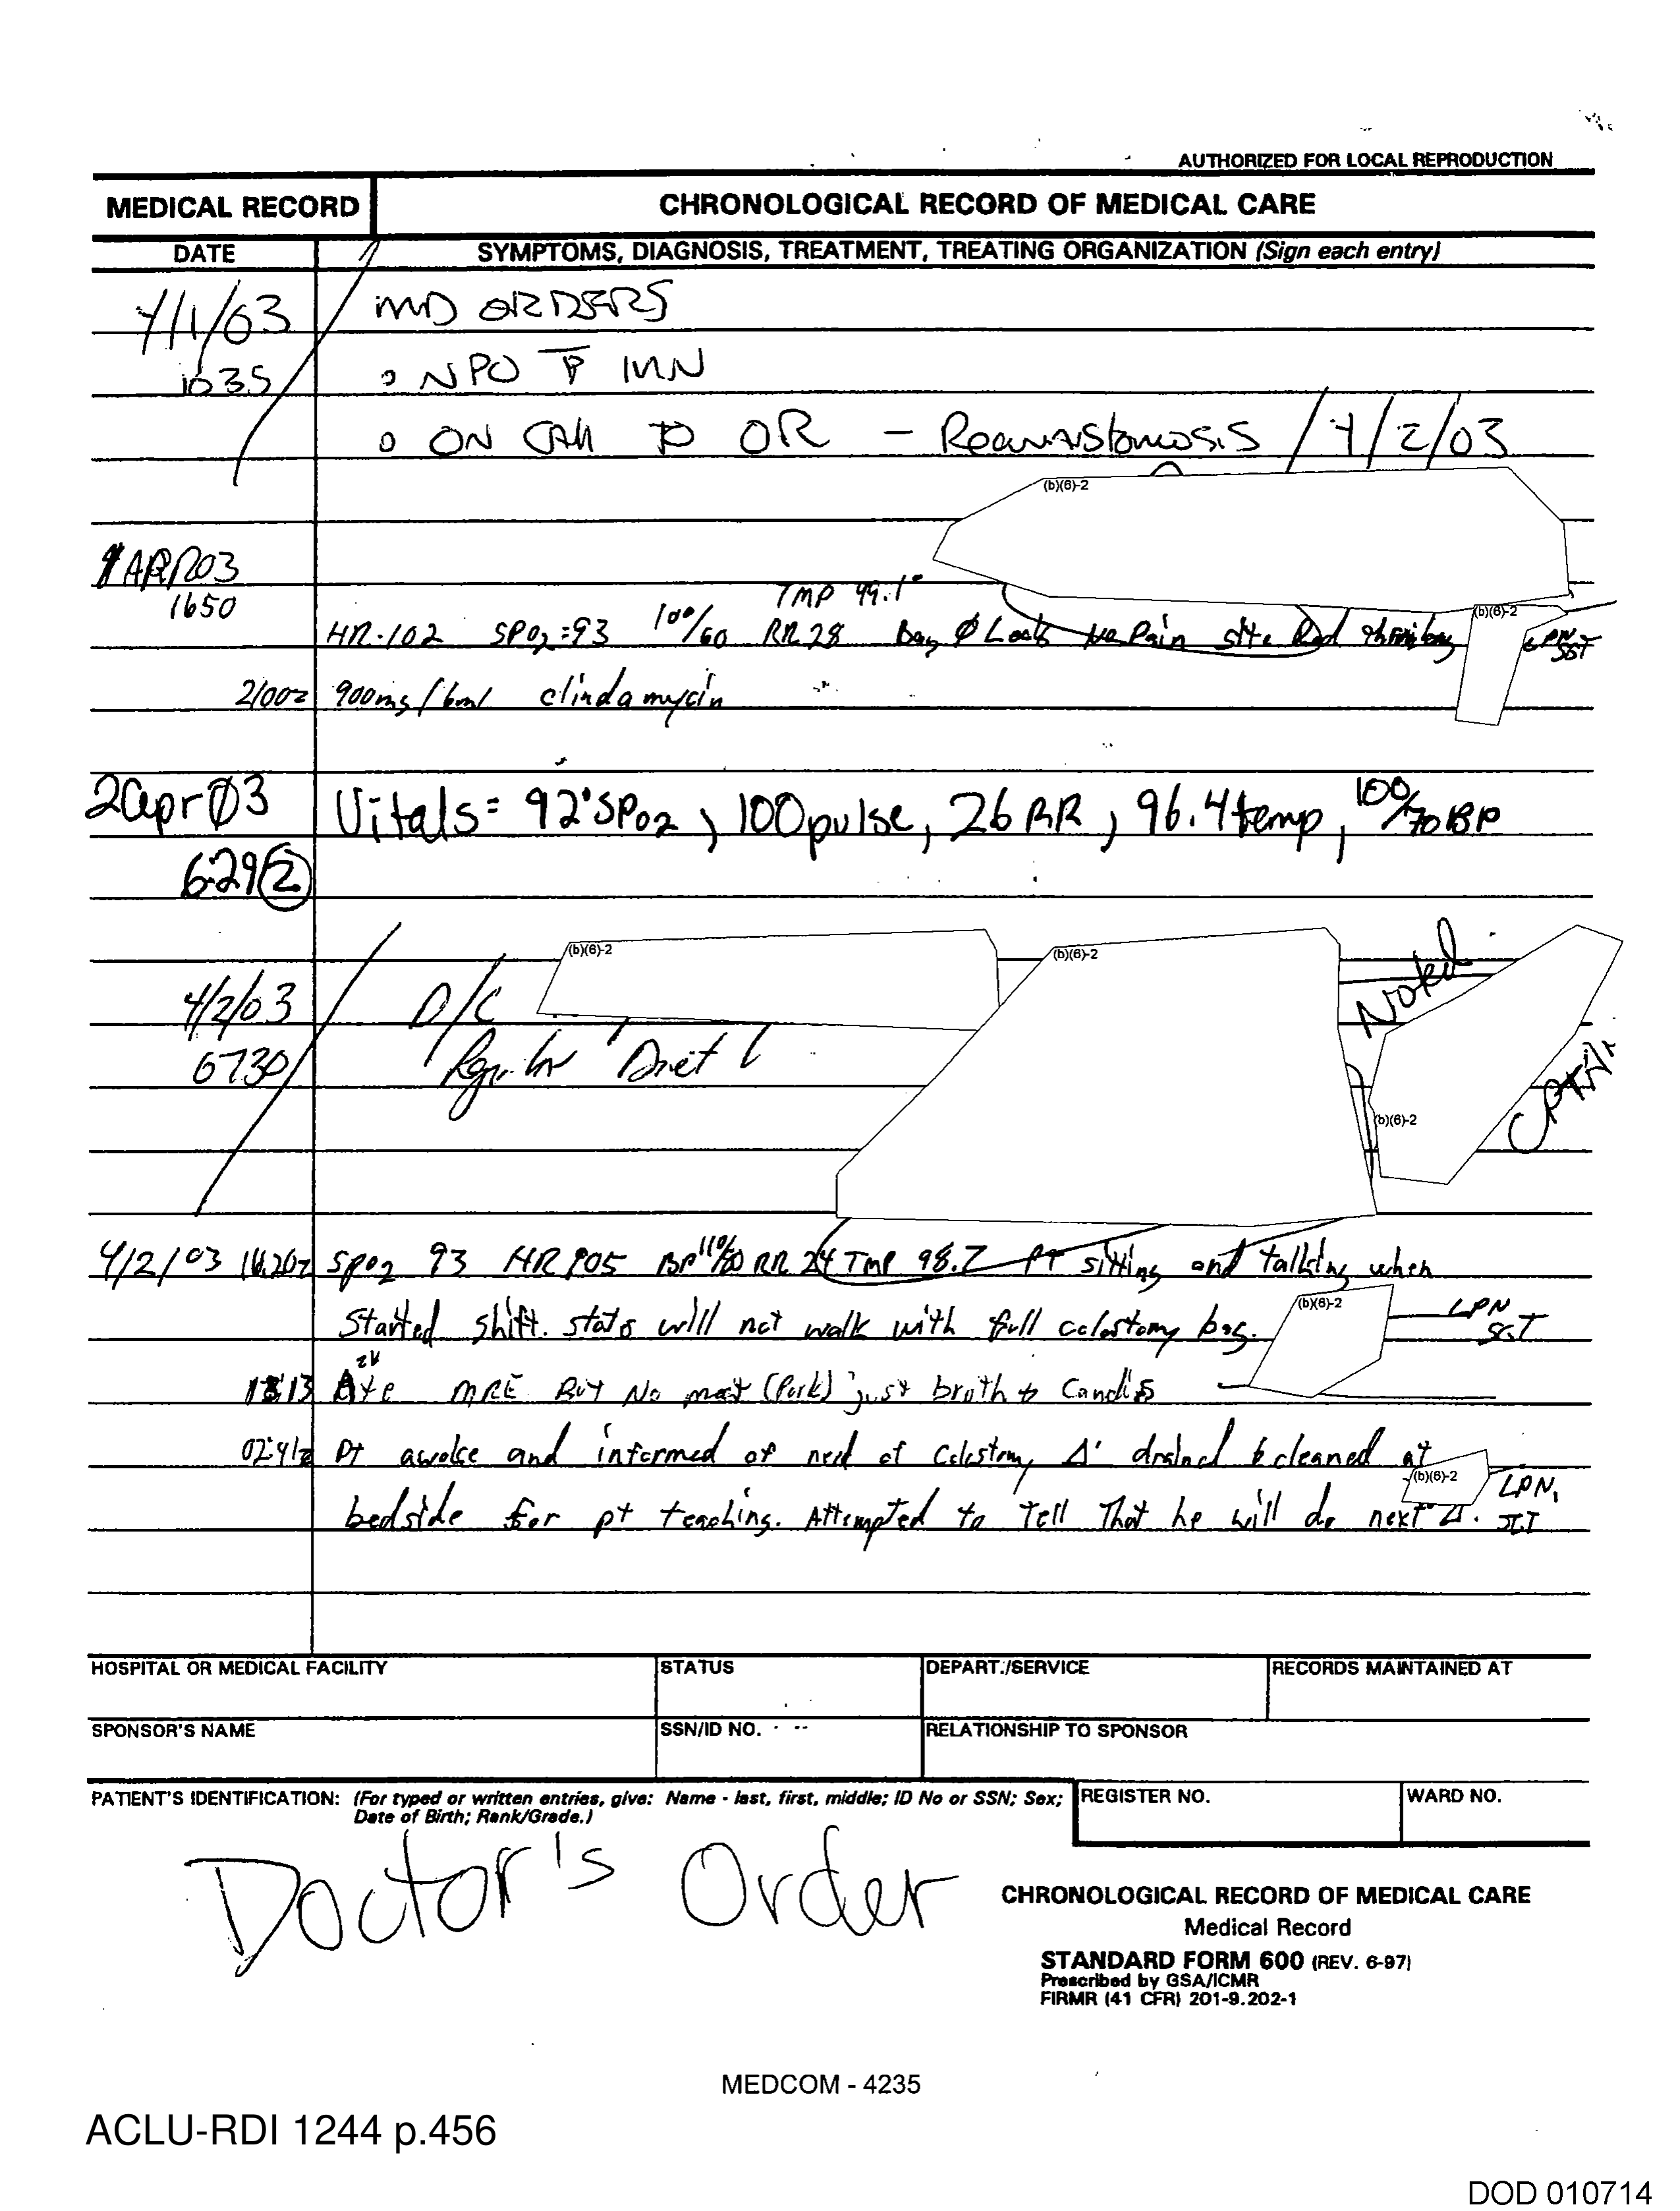 AUTHORIZED FOR LOCAL REPRODUCTION
MEDICAL RECORD
CHRONOLOGICAL RECORD OF MEDICAL CARE
DATE
SYMPTOMS, DIAGNOSIS, TREATMENT, TREATING ORGANIZATION (Sign each entry)
4/1/03 MD ORDERS
1035 o NPO P̄ MN
o ON CALL TO OR - Reanastomosis 4/2/03
(b)(6)-2
1APR03
1650 TMP 99.1°
HR-102 SPO2=93 100/60 RR 28 Bag Ø Leak No Pain site Red (b)(6)-2 LPN SGT
2100z 900mg/6ml clindamycin
2Apr03 Vitals= 92°SPO2, 100pulse, 26RR, 96.4temp, 100/70BP
6:29(Z)
(b)(6)-2 (b)(6)-2 Noted
4/2/03 D/C
0730 Regular Diet
(b)(6)-2 CPT
4/2/03 1620z SPO2 93 HR 105 BP 110/80 RR 24 TMP 98.7 PT sitting and talking when
started shift. states will not walk with full colostomy bag. (b)(6)-2 LPN SGT
1813 Ate MRE But No meat (Pork) just broth & Candis
0241z Pt awoke and informed of need of Colostomy Δ' drained & cleaned at
(b)(6)-2 LPN,
bedside for pt teaching. Attempted to Tell That he will do next Δ.
HOSPITAL OR MEDICAL FACILITY
STATUS
DEPART./SERVICE
RECORDS MAINTAINED AT
SPONSOR'S NAME
SSN/ID NO.
RELATIONSHIP TO SPONSOR
PATIENT'S IDENTIFICATION: (For typed or written entries, give: Name - last, first, middle; ID No or SSN; Sex;
Date of Birth; Rank/Grade.)
REGISTER NO.
WARD NO.
Doctor's Order
CHRONOLOGICAL RECORD OF MEDICAL CARE
Medical Record
STANDARD FORM 600 (REV. 6-97)
Prescribed by GSA/ICMR
FIRMR (41 CFR) 201-9.202-1
MEDCOM - 4235
ACLU-RDI 1244 p.456
DOD 010714